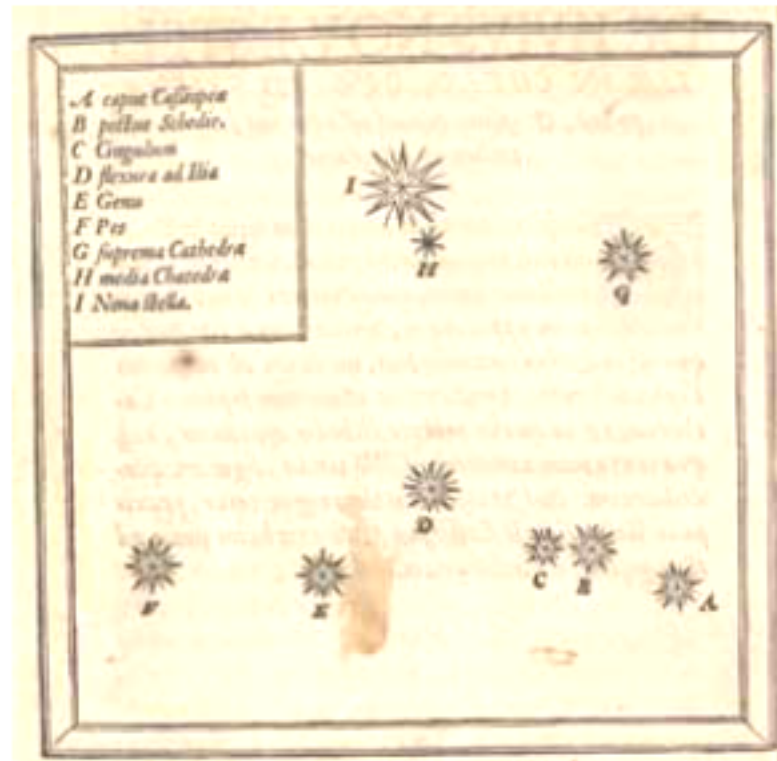 A caput Cassiopeæ
B pectus Schedir.
C Cingulum
D flexura ad Ilia
E Genu
F Pes
G suprema Cathedra
H media Chatedra
I Nova stella.
I
H
G
D
C
B
A
E
F